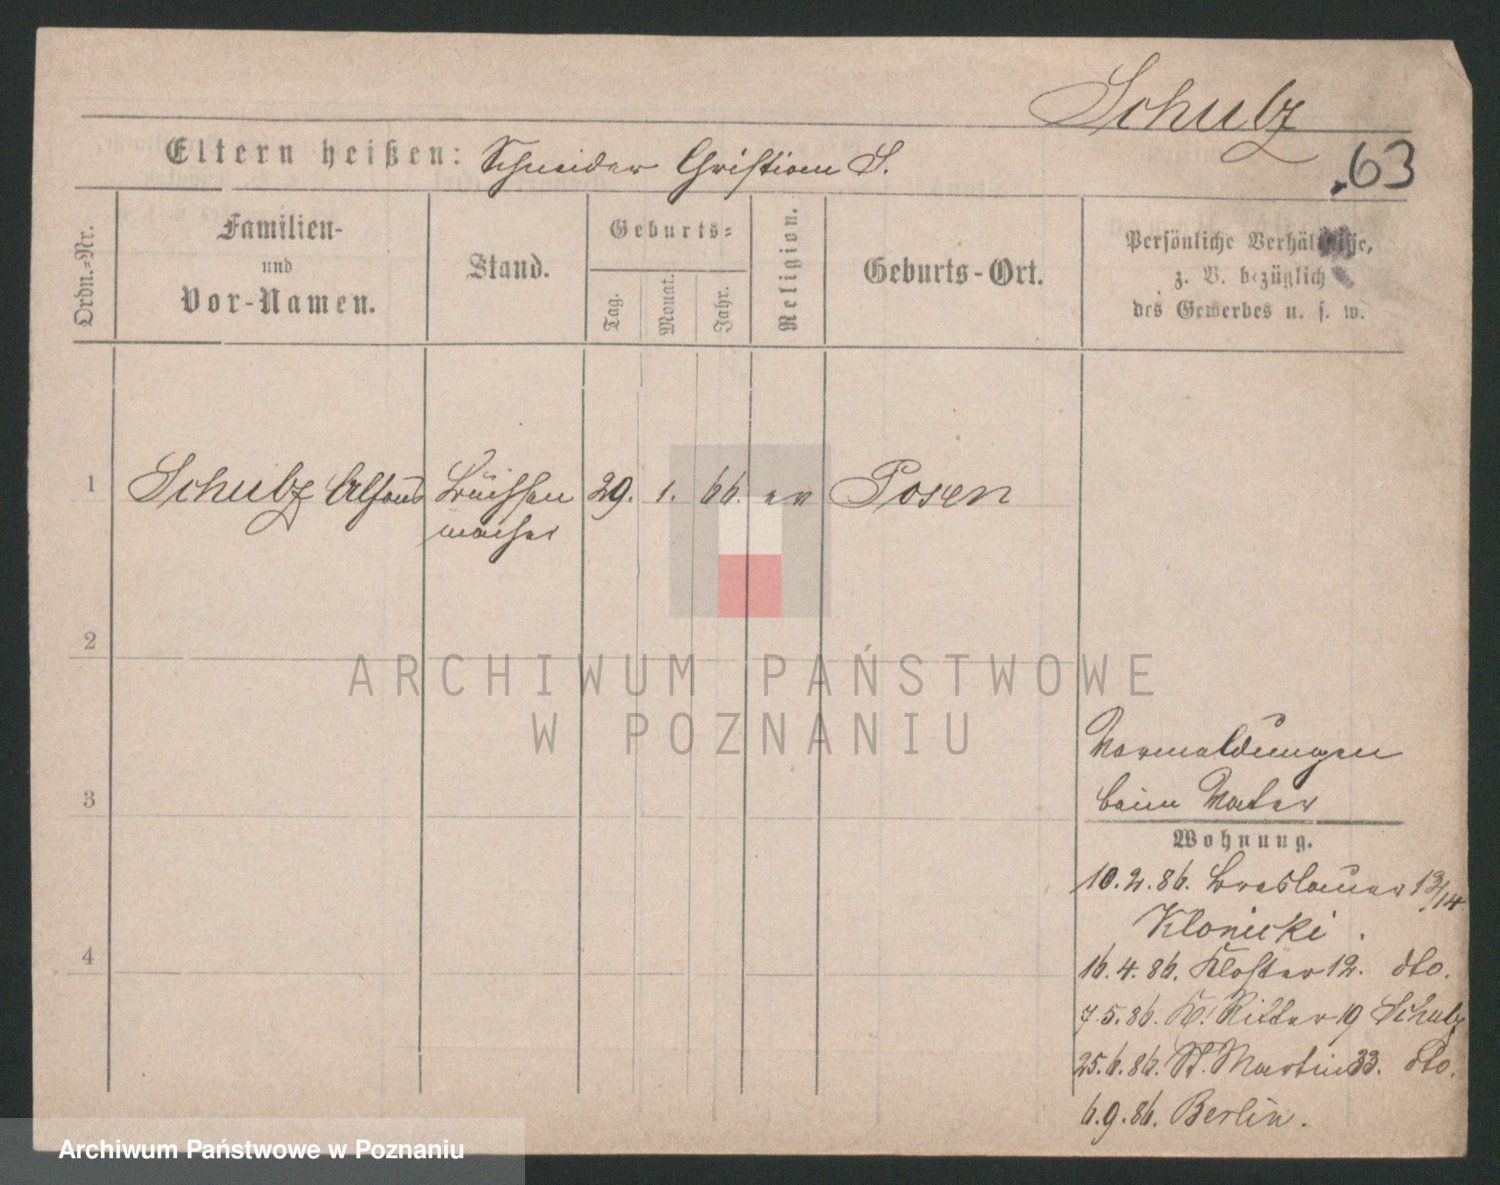 Schulz
63
Eltern heißen: Schneider Christian S.
Ordn.-Nr.
Familien-
und
Vor-Namen.
Stand.
Geburts-
Tag.
Monat.
Jahr.
Religion.
Geburts-Ort.
Persönliche Verhältnisse,
z. B. bezüglich
des Gewerbes u. s. w.
1 Schulz Alfons Büchsen 29. 1. 66. ev Posen
macher
2
3
4
ARCHIWUM PAŃSTWOWE
W POZNANIU
Vormeldungen
beim Vater
Wohnung.
10.2.86. Breslauer 13/14
Klonicki.
16.4.86. Kloster 12. dto.
7.5.86. Kl. Ritter 10 Schulz
25.6.86. St. Martin 33. dto.
6.9.86. Berlin.
Archiwum Państwowe w Poznaniu